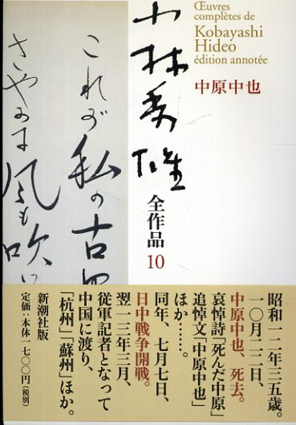 Œuvres
complètes de
Kobayashi
Hideo
édition annotée
中原中也
小林秀雄
全作品 10
これが私の古里
さやかに風も吹い
昭和一二年三五歳。
一〇月二二日、
中原中也、死去。
哀悼詩「死んだ中原」
追悼文「中原中也」
ほか……。
同年、七月七日、
日中戦争開戦。
翌一三年三月、
従軍記者となって
中国に渡り、
「杭州」「蘇州」ほか。
新潮社版
定価：本体一七〇〇円（税別）